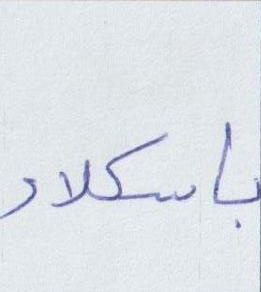 باسكلار